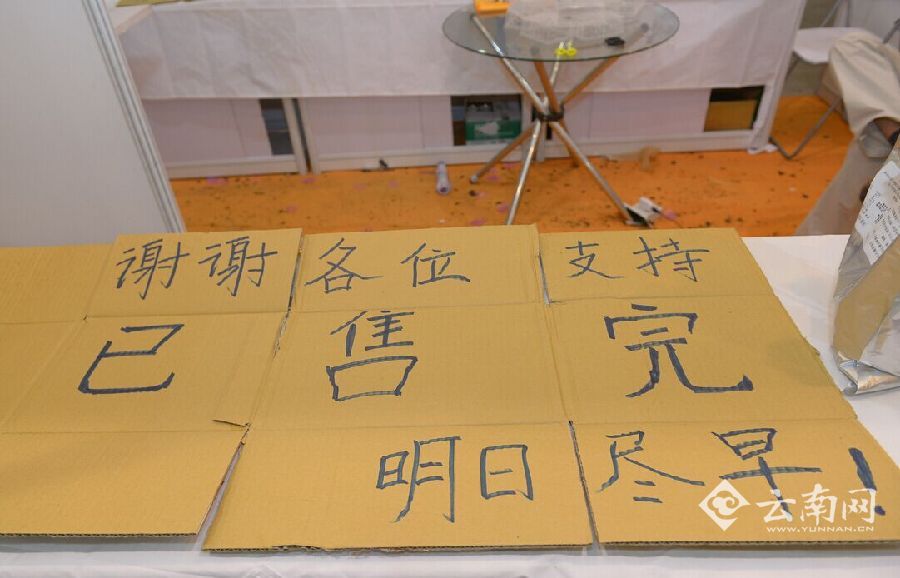 谢谢各位支持
已售完
明日尽早!
云南网
WWW.YUNNAN.CN